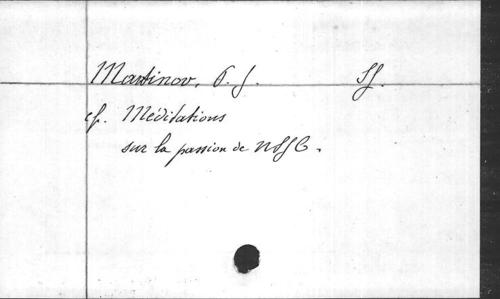 Martinov, P. J. SJ.
cf. Méditations
sur la passion de NSJC.